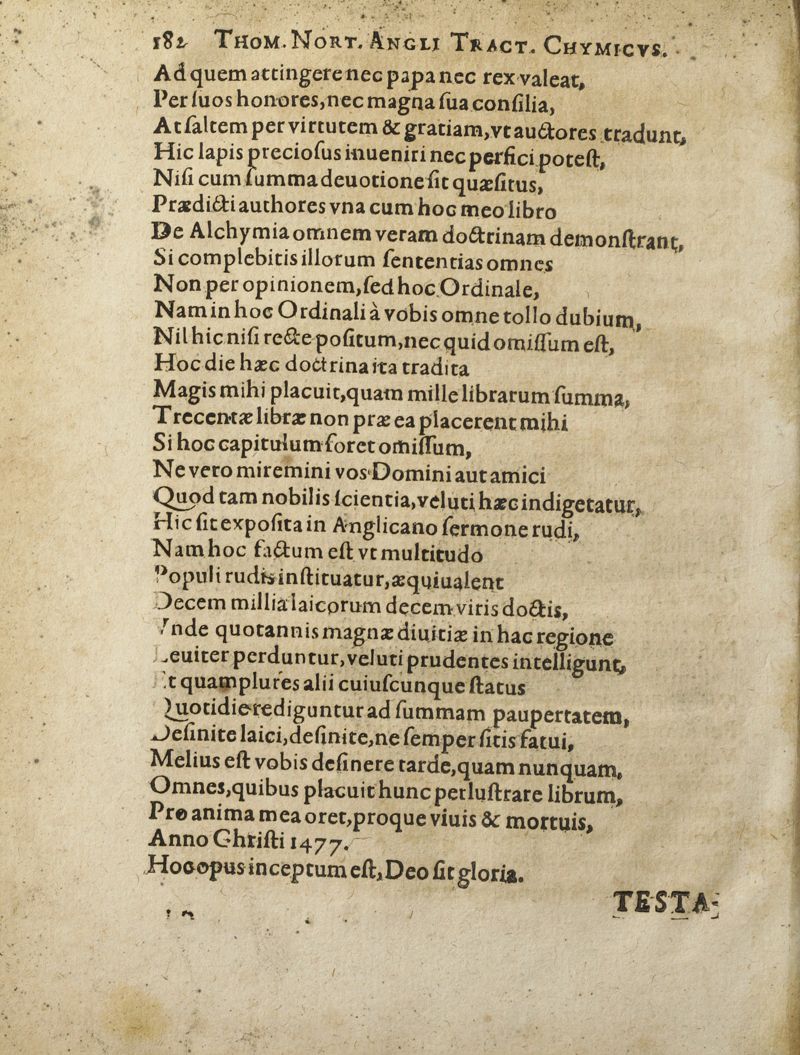 182 THOM. NORT. ANGLI TRACT. CHYMICVS.
Ad quem attingere nec papa nec rex valeat,
Per ſuos honores, nec magna ſua conſilia,
At ſaltem per virtutem & gratiam, vt auctores tradunt,
Hic lapis precioſus inueniri nec perfici poteſt,
Niſi cum ſumma deuotione ſit quæſitus,
Prædicti authores vna cum hoc meo libro
De Alchymia omnem veram doctrinam demonſtrant,
Si complebitis illorum ſententias omnes
Non per opinionem, ſed hoc Ordinale,
Nam in hoc Ordinali à vobis omne tollo dubium,
Nil hic niſi recte poſitum, nec quid omiſſum eſt,
Hoc die hæc doctrina ita tradita
Magis mihi placuit, quam mille librarum ſumma,
Trecentæ libræ non præ ea placerent mihi
Si hoc capitulum foret omiſſum,
Ne vero miremini vos Domini aut amici
Quod tam nobilis ſcientia, veluti hæc indigetatur,
Hic ſit expoſita in Anglicano ſermone rudi,
Nam hoc factum eſt vt multitudo
Populi rudis inſtituatur, æquiualent
Decem millia laicorum decem viris doctis,
Vnde quotannis magnæ diuitiæ in hac regione
Leuiter perduntur, veluti prudentes intelligunt,
Et quamplures alii cuiuſcunque ſtatus
Quotidie rediguntur ad ſummam paupertatem,
Deſinite laici, deſinite, ne ſemper ſitis fatui,
Melius eſt vobis deſinere tarde, quam nunquam,
Omnes, quibus placuit hunc perluſtrare librum,
Pro anima mea oret, proque viuis & mortuis,
Anno Chriſti 1477.
Hoc opus inceptum eſt, Deo ſit gloria.
TESTA-